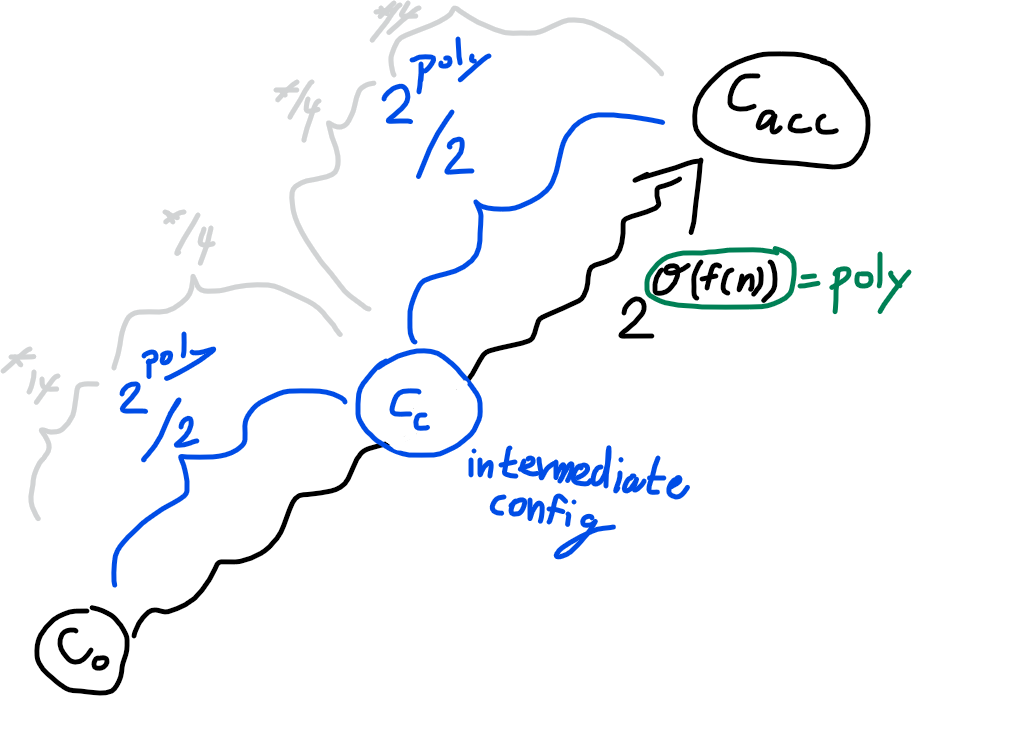 */4
*/4
2^poly/2
C_acc
*/4
2^O(f(n)) = poly
*/4
2^poly/2
C_c
intermediate
config
C_0